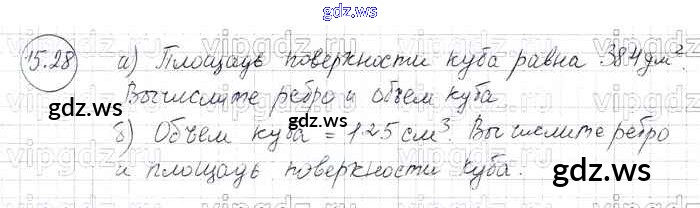 gdz.ws
15.28 а) Площадь поверхности куба равна 384 дм².
Вычислите ребро и объем куба.
gdz.ws gdz.ws
б) Объем куба = 125 см³. Вычислите ребро
и площадь поверхности куба.
gdz.ws gdz.ws